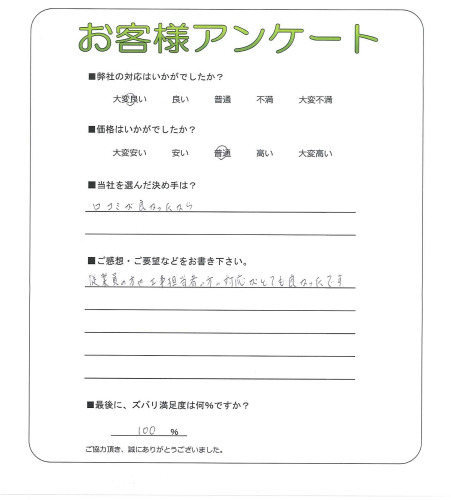 お客様アンケート
■弊社の対応はいかがでしたか？
大変良い 良い 普通 不満 大変不満
■価格はいかがでしたか？
大変安い 安い 普通 高い 大変高い
■当社を選んだ決め手は？
口コミが良かったから
■ご感想・ご要望などをお書き下さい。
従業員の方や工事担当者の方の対応がとても良かったです
■最後に、ズバリ満足度は何％ですか？
100 ％
ご協力頂き、誠にありがとうございました。